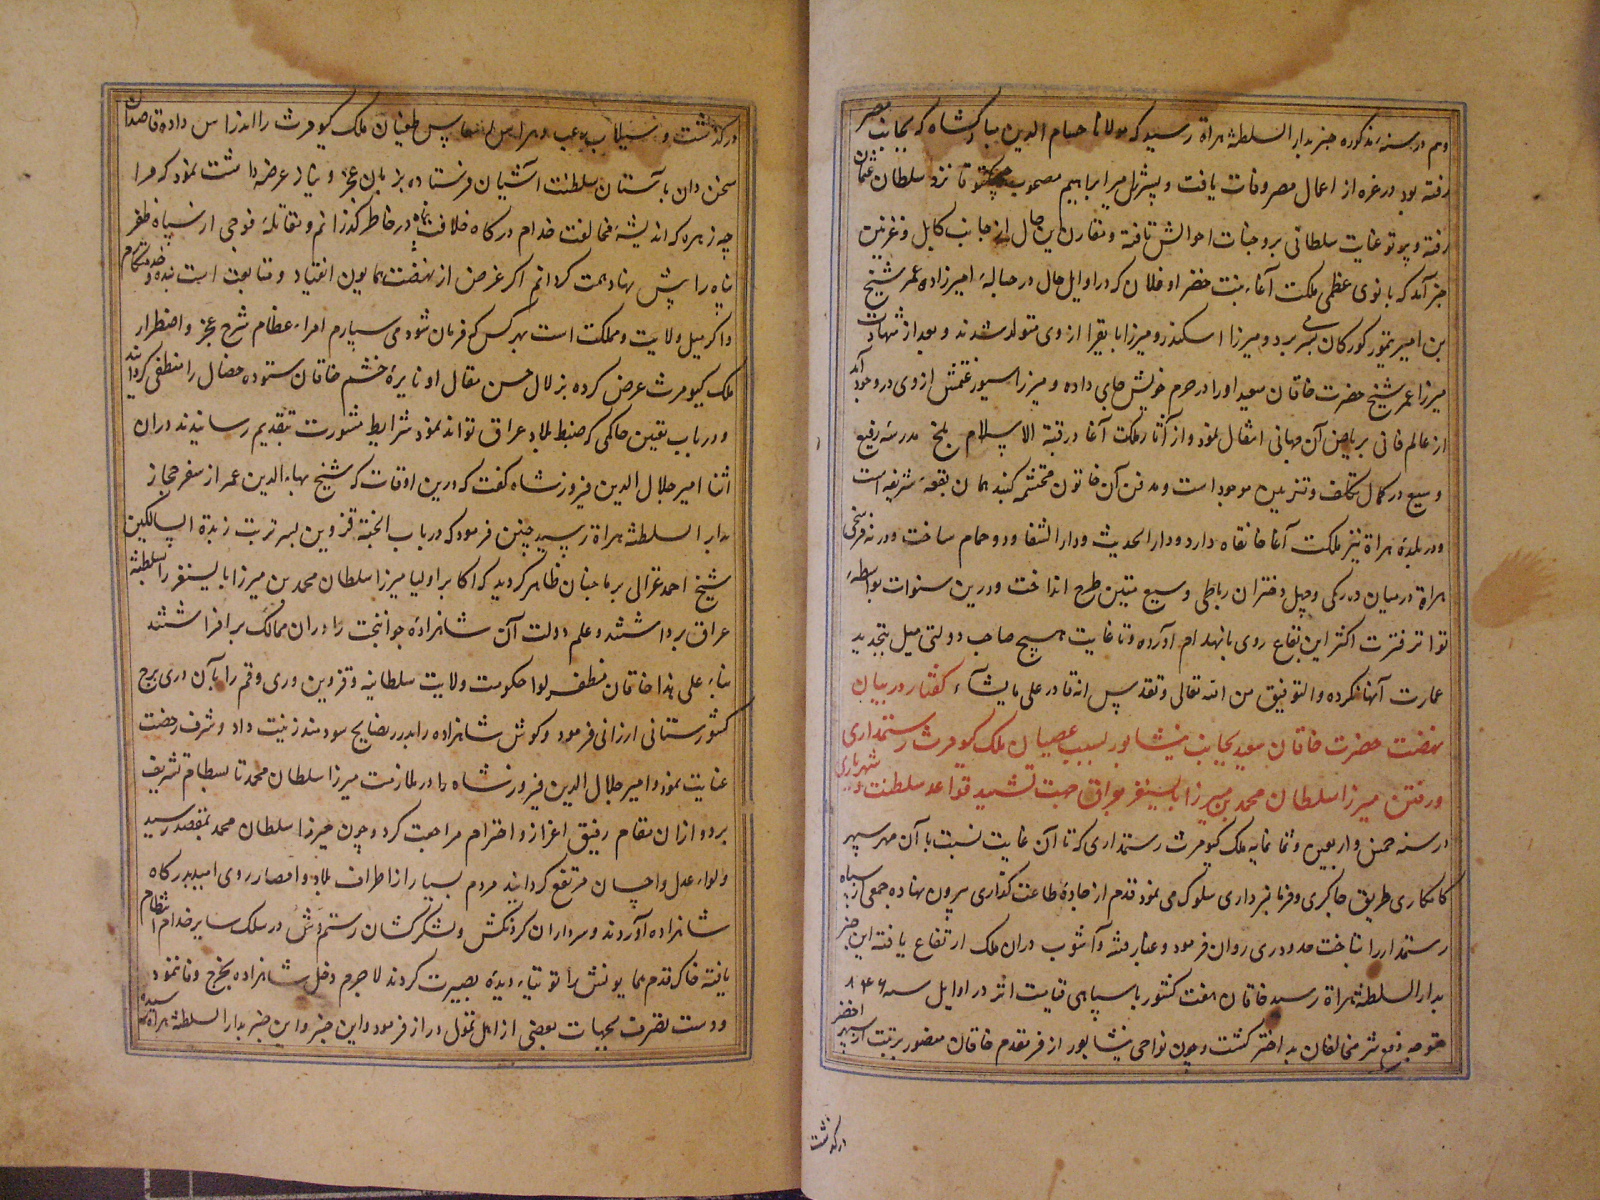 وهم در سنه مذکوره خبر بدار السلطنه هراة رسید که مولانا حسام الدین مبارکشاه که بجانب مصر
رفته بود در غزه از اعمال مصر وفات یافت و پسرش میر ابراهیم مصحوب مکتوب تا نزد سلطان عثمان
رفته و پرتو عنایت سلطانی بر وجنات احوالش تافته و مقارن این حال از جانب کابل و غزنین
خبر آمد که بانوی عظمی ملکت آغاء بنت خضر اوغلان که در اوایل حال در حباله امیرزاده عمر شیخ
بن امیر تیمور کورکان بسر می برد و میرزا اسکندر و میرزا بایقرا از وی متولد شدند و بعد از شهادت
میرزا عمر شیخ حضرت خاقان سعید او را در حرم خویش جای داده و میرزا سیورغتمش از وی در وجود آمد
از عالم فانی بریاض آن جهانی انتقال نمود و از آثار ملکت آغا در قبة الاسلام بلخ مدرسه رفیع
وسیع در کمال تکلف و تزیین موجود است و مدفن آن خاتون محتشمه کنبد همان بقعه شریفه است
و در بلده هراة نیز ملکت آغا خانقاه دارد و دار الحدیث و دار الشفا و دو حمام ساخت و در نه فرسخی
هراة در میان دره زنکی و چهل دختران رباطی وسیع متین طرح انداخت و درین سنوات بواسطهٔ
تواتر فترت اکثر این بقاع روی بانهدام آورده و تا غایت هیچ صاحب دولتی میل بتجدید
عمارت آنها نکرده و التوفیق من الله تعالی و تقدس انه قادر علی ما یشاء کفتار در بیان
نهضت حضرت خاقان سعید بجانب نیشابور بسبب عصیان ملک کیومرث رستمداری
و رفتن میرزا سلطان محمد بن میرزا بایسنغر بعراق جهت تشیید قواعد سلطنت و شهریاری
در سنه خمس و اربعین و ثمانمایه ملک کیومرث رستمداری که تا آن غایت نسبت بآن مهر سپهر
کامکاری طریق چاکری و فرمانبرداری سلوک می نمود قدم از جادهٔ طاعت کذاری بیرون نهاده جمعی از سپاه
رستمدار را بتاخت حدود ری روان فرمود و غبار فتنه و آشوب دران ملک ارتفاع یافته این خبر
بدار السلطنه هراة رسید خاقان هفت کشور با سپاهی قیامت اثر در اوایل سنه ۸۴۶
متوجه دفع شر مخالفان بد اختر کشت و چون نواحی نیشابور از فر مقدم خاقان منصور برتبت از سپهر اخضر
درکذشت
درکذشت و سیلاب رعب و هراس اساس طغیان ملک کیومرث را اندراس داده قاصدان
سخن دان بآستان سلطنت آشیان فرستاده بزبان عجز و نیاز عرضه داشت نمود که مرا
چه زهره که اندیشهٔ مخالفت خدام درکاه خلافت پناه در خاطر کذرانم و مقاتلهٔ فوجی از سپاه ظفر
پناه را پیش نهاد همت کردانم اکر غرض از نهضت همایون انقیاد و متابعت است بنده خدمتکارم
و اکر میل ولایت و مملکت است بهر کس که فرمان شود می سپارم امراء عظام شرح عجز و اضطرار
ملک کیومرث عرض کرده بزلال حسن مقال او نایرهٔ خشم خاقان ستوده خصال را منطفی کردانیدند
و در باب تعیین حاکمی که ضبط بلاد عراق تواند نمود شرایط مشورت بتقدیم رسانیدند دران
اثنا امیر جلال الدین فیروزشاه کفت که درین اوقات که شیخ بهاء الدین عمر از سفر حجاز
بدار السلطنه هراة رسید چنین فرمود که در باب الجنة قزوین بسر تربت زبدة السالکین
شیخ احمد غزالی بر ما چنان ظاهر کردید که اکابر اولیا میرزا سلطان محمد بن میرزا بایسنغر را بسلطنة
عراق برداشتند و علم دولت آن شاهزادهٔ جوانبخت را دران ممالک برافراشتند
بناء علی هذا خاقان مظفر لوا حکومت ولایت سلطانیه و قزوین و ری و قم را بآن دری برج
کشورستانی ارزانی فرمود و کوش شاهزاده را بدرر نصایح سودمند زینت داد و شرف رخصت
عنایت نمود و امیر جلال الدین فیروزشاه را در ملازمت میرزا سلطان محمد تا بسطام تشریف
برد و ازان مقام رفیق اعزاز و احترام مراجعت کرد و چون میرزا سلطان محمد بمقصد رسید
و لواء عدل و احسان مرتفع کردانید مردم بسیار از اطراف بلاد و امصار روی امید بدرکاه
شاهزاده آوردند و سرداران کردنکش و لشکرکشان رستم وش در سلک سایر خدام انتظام
یافته خاک قدم همایونش را توتیاء دیدهٔ بصیرت کردند لاجرم دخل شاهزاده بخرج وفا ننمود
و دست تصرف بجهات بعضی از اهل تمول دراز فرمود و این خبر بدار السلطنه هراة رسیده